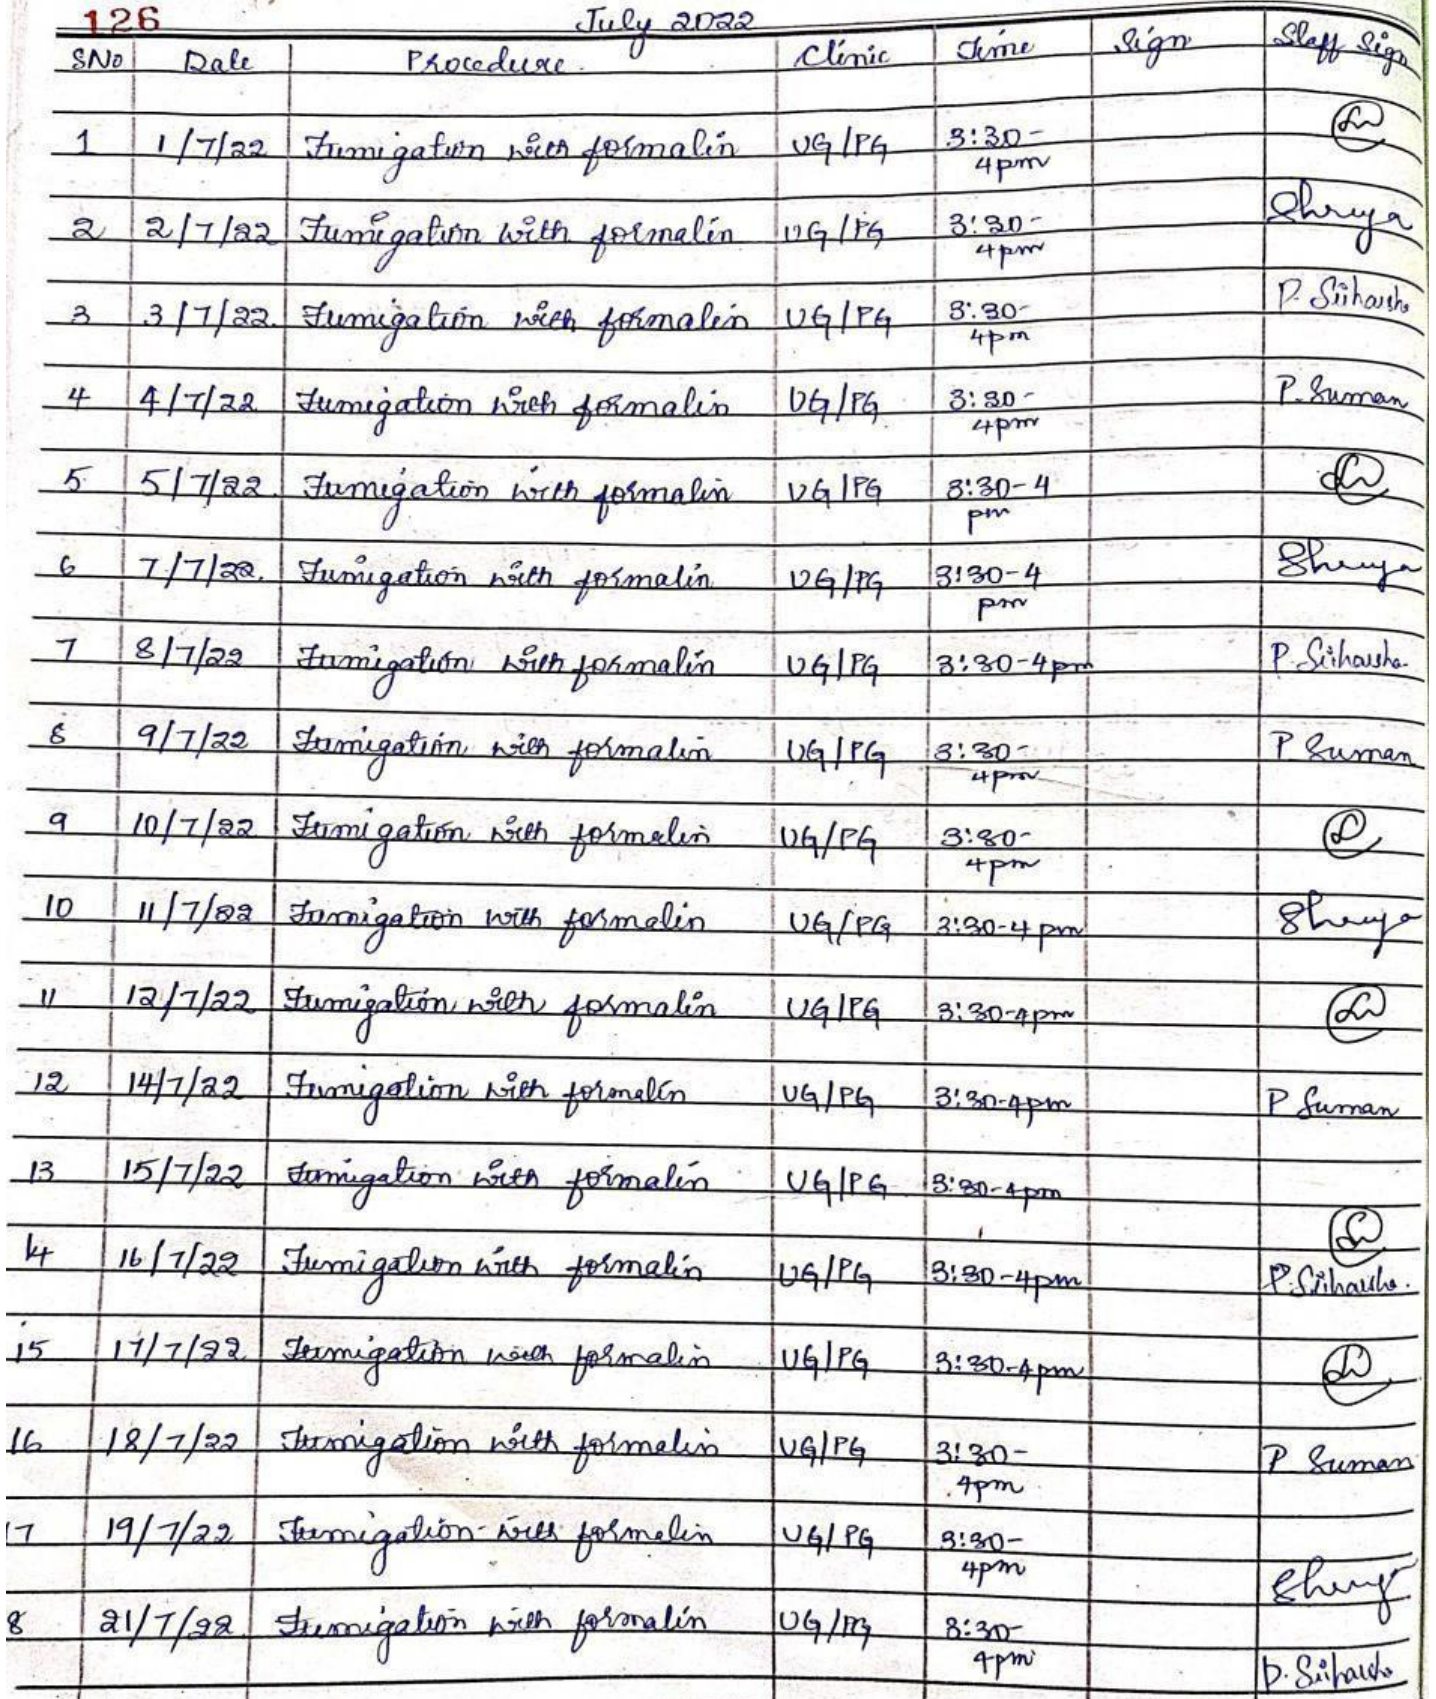 126 July 2022
SNo Date Procedure. Clinic Time Sign Staff Sign
1 1/7/22 Fumigation with formalin UG/PG 3:30-
4pm
2 2/7/22 Fumigation with formalin UG/PG 3:30- Shreya
4pm
3 3/7/22. Fumigation with formalin UG/PG 3:30- P.
4pm
4 4/7/22 Fumigation with formalin UG/PG 3:30- P. Suman
4pm
5 5/7/22 Fumigation with formalin UG/PG 3:30-4
pm
6 7/7/22. Fumigation with formalin UG/PG 3:30-4 Shreya
pm
7 8/7/22 Fumigation with formalin UG/PG 3:30-4pm P.
8 9/7/22 Fumigation with formalin UG/PG 3:30- P Suman
4pm
9 10/7/22 Fumigation with formalin UG/PG 3:30-
4pm
10 11/7/22 Fumigation with formalin UG/PG 3:30-4 pm Shreya
11 12/7/22 Fumigation with formalin UG/PG 3:30-4pm
12 14/7/22 Fumigation with formalin UG/PG 3:30-4pm P Suman
13 15/7/22 Fumigation with formalin UG/PG 3:30-4pm
14 16/7/22 Fumigation with formalin UG/PG 3:30-4pm P.
15 17/7/22 Fumigation with formalin UG/PG 3:30-4pm
16 18/7/22 Fumigation with formalin UG/PG 3:30- P Suman
4pm
17 19/7/22 Fumigation with formalin UG/PG 3:30-
4pm Shreya
8 21/7/22 Fumigation with formalin UG/PG 3:30-
4pm P.